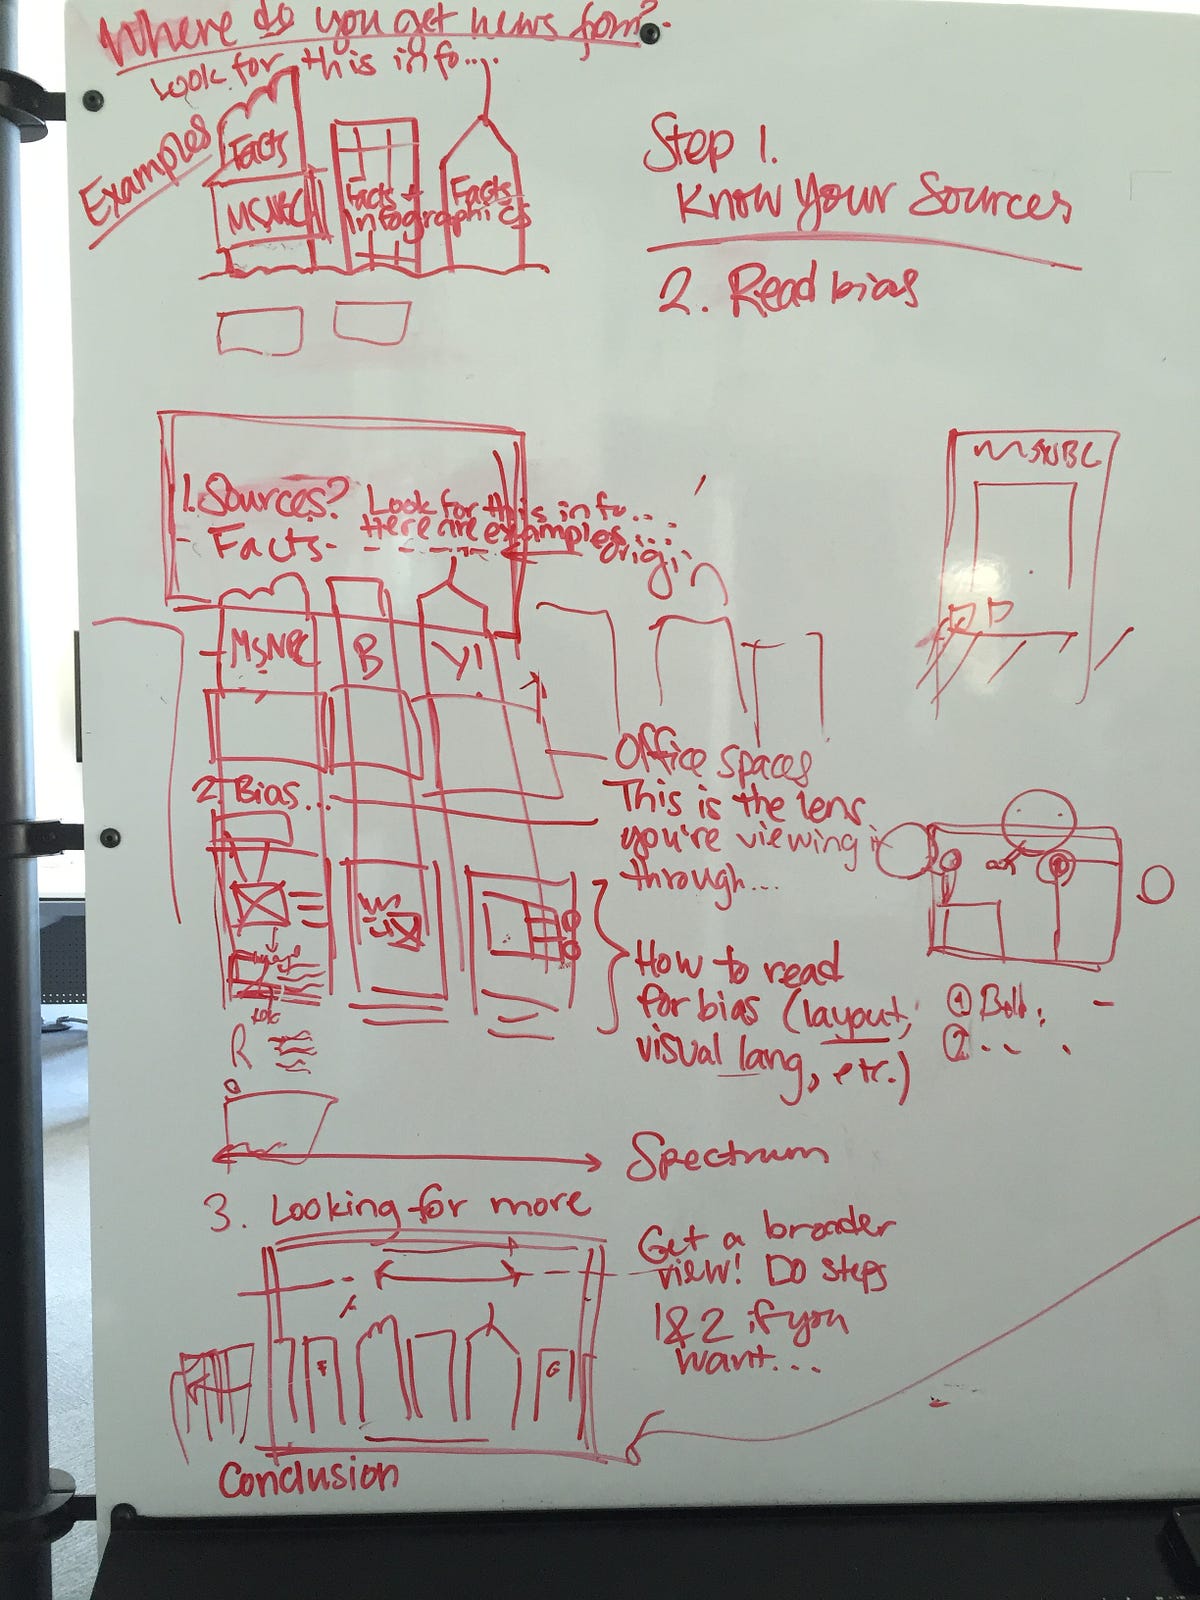 Where do you get news from?
Look for this info...
Examples
Facts
MSNBC
Facts +
Infographics
Facts
Step 1.
Know Your Sources
2. Read bias
MSNBC
1. Sources? Look for this info...
Here are examples...
- Facts-
Origin
MSNBC
B
Y!
Office spaces
This is the lens
you're viewing it
through...
2. Bias...
How to read
for bias (layout,
visual lang, etc.)
① Bold,
②
R
Spectrum
3. Looking for more
Get a broader
view! Do steps
1&2 if you
want...
F
G
Conclusion